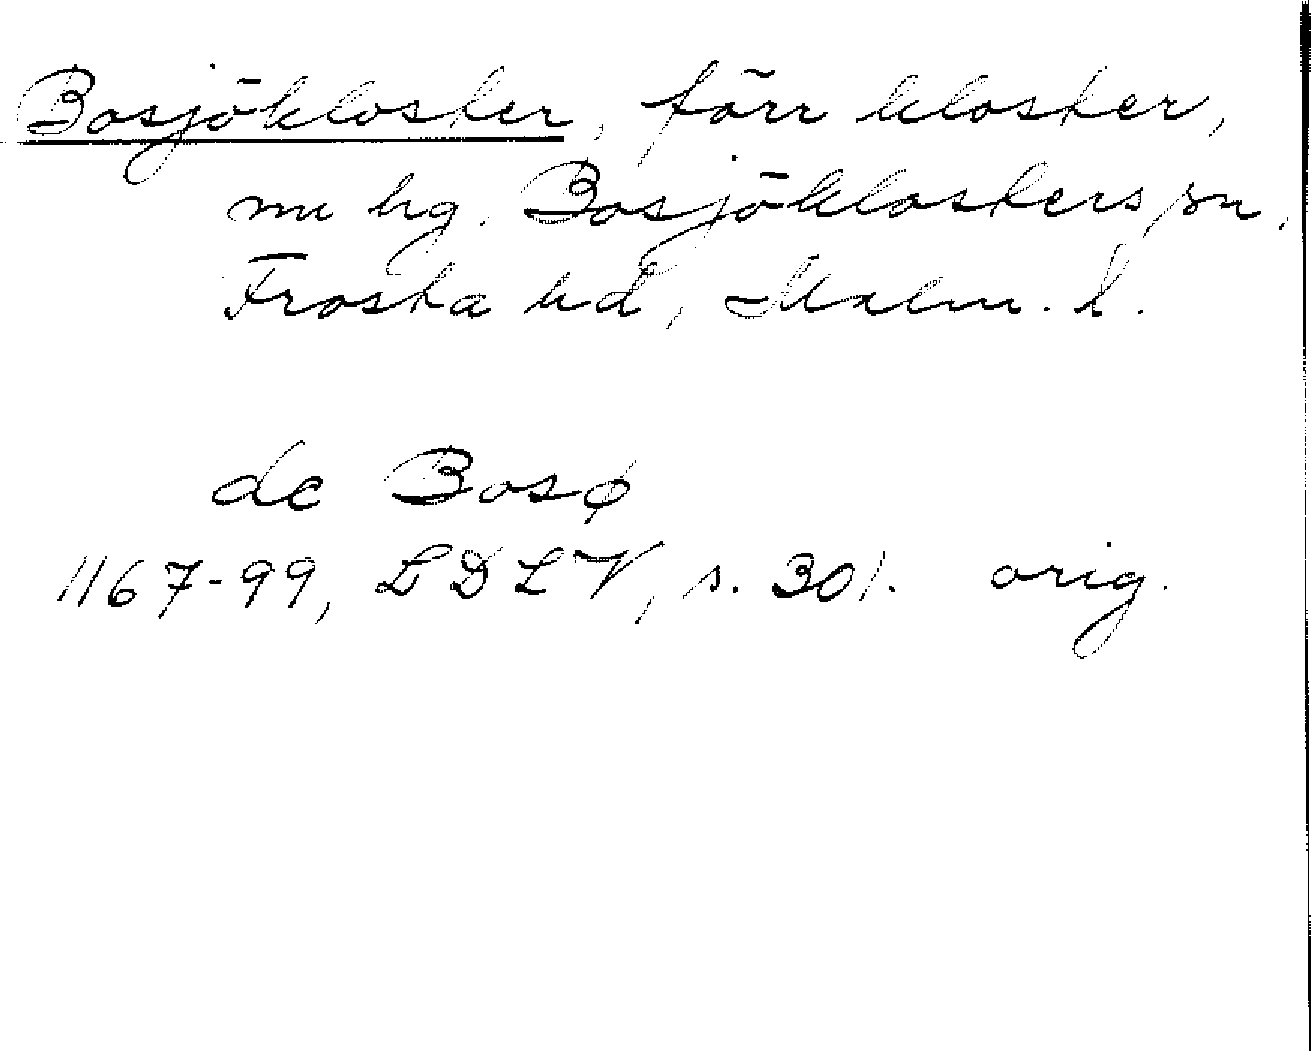 Bosjökloster, förr kloster,
nu hg, Bosjöklosters sn,
Frosta hd, Malm. l.
de Bosø
1167-99, LDLV, s. 301. orig.